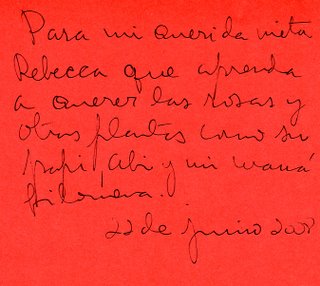 Para mi querida nieta
Rebecca que aprenda
a querer las rosas y
otras plantas como su
papi, Abi y mi mamá
Filomena.
22 de Junio 2008